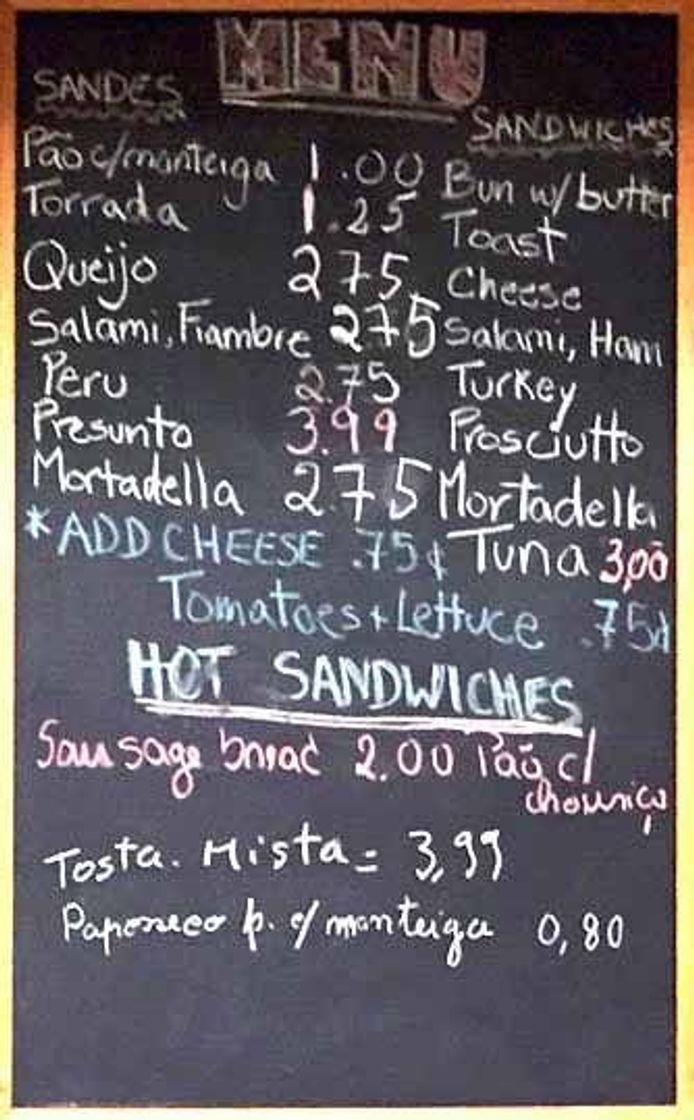 MENU
SANDES SANDWICHES
Pão c/manteiga 1.00 Bun w/ butter
Torrada 1.25 Toast
Queijo 275 Cheese
Salami, Fiambre 275 Salami, Ham
Peru 2.75 Turkey
Presunto 3.99 Prosciutto
Mortadella 2.75 Mortadella
*ADD CHEESE .75¢ Tuna 3,00
Tomatoes + Lettuce .75¢
HOT SANDWICHES
Sausage bread 2.00 Pão c/
chouriço
Tosta. Mista = 3,99
Paposeco p. c/ manteiga 0,80